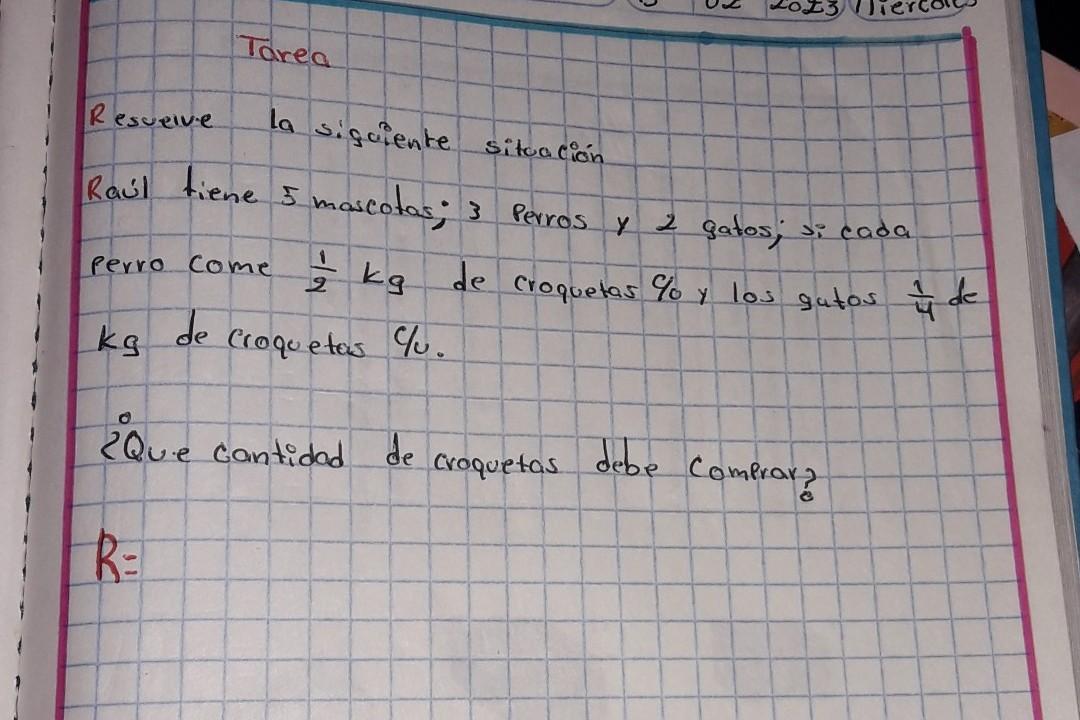 02 2023 Miercoles
Tarea
Resuelve la siguiente situación
Raúl tiene 5 mascotas; 3 Perros y 2 gatos; si cada
perro come 1/2 kg de croquetas c/u y los gatos 1/4 de
kg de croquetas c/u.
¿Que cantidad de croquetas debe comprar?
R=